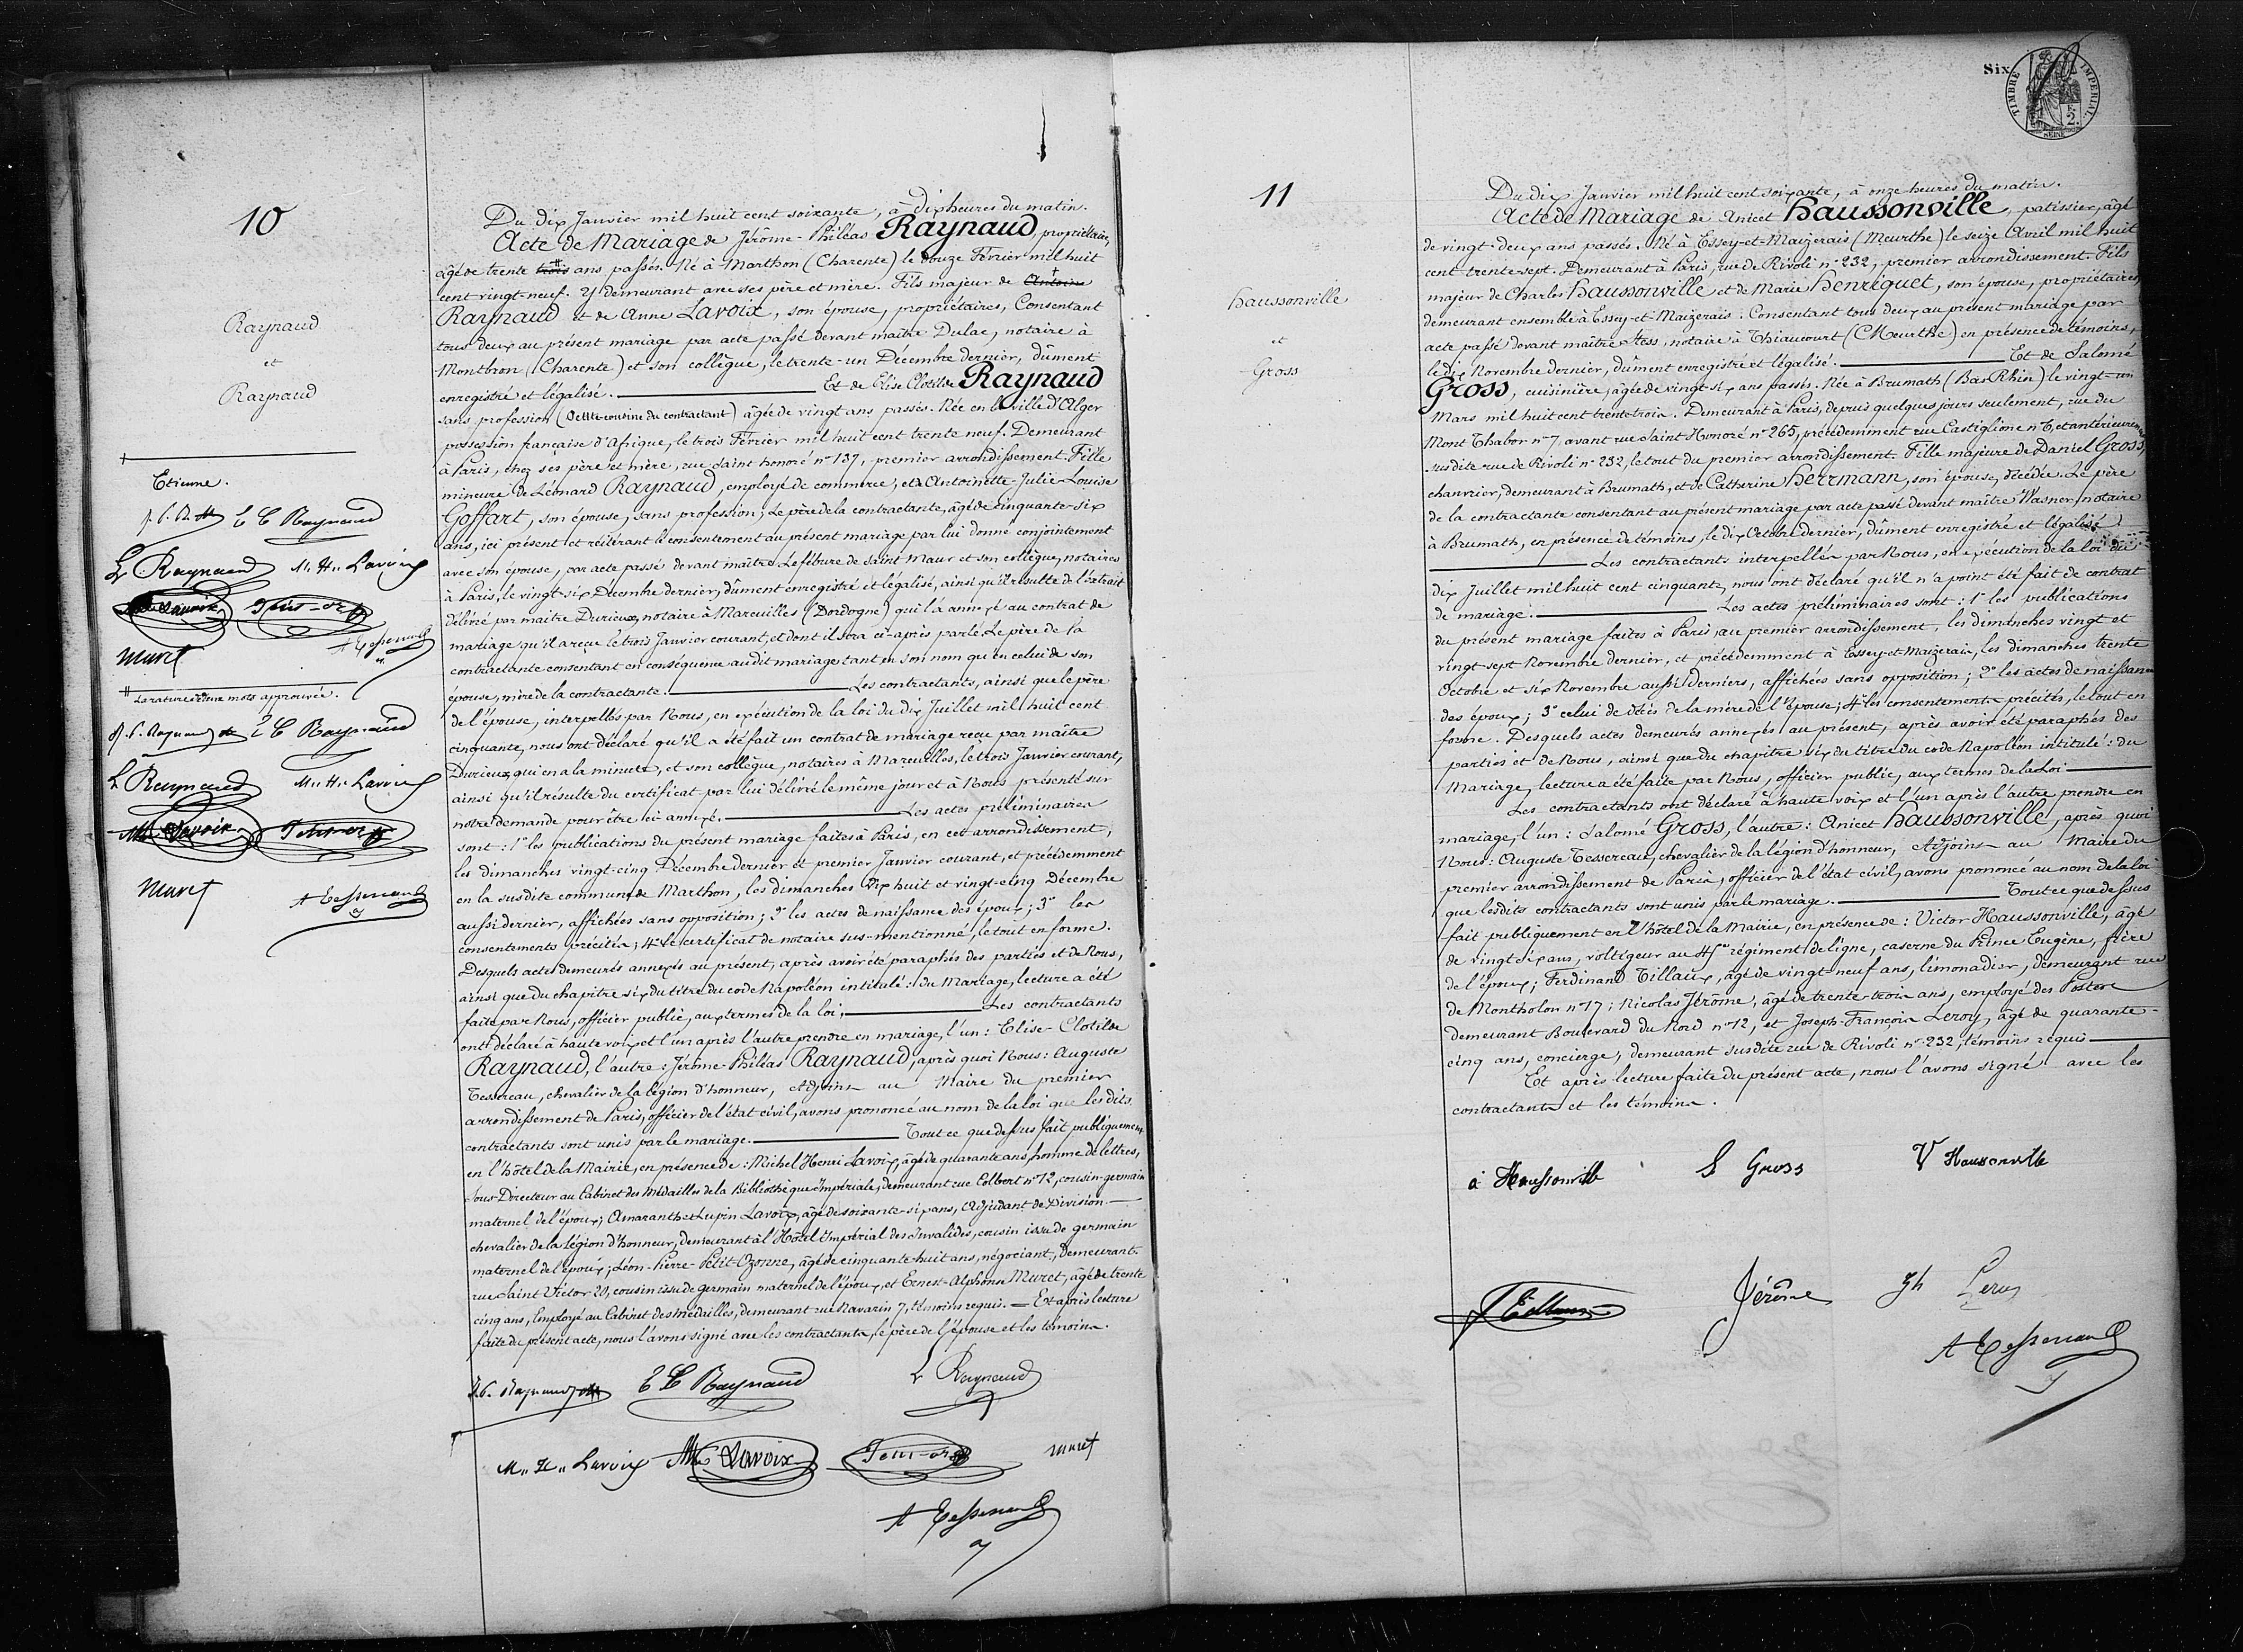 10
Raynaud
et
Raynaud
Etienne.
E C Raynaud
L Raynaud M. H. Lavoix
Lavoix
Muret
La rature de deux mots approuvée.
J. P. Raynaud E C Raynaud
L Raynaud M. H. Lavoix
Lavoix
Muret A Tessereau
Du dix Janvier mil huit cent soixante, à dix heures du matin.
Acte de Mariage de Jérôme-Philéas Raynaud, propriétaire,
âgé de trente trois ans passés. Né à Marthon (Charente) le douze Février mil huit
cent vingt-neuf. Y demeurant avec ses père et mère. Fils majeur de Antoine
Raynaud et de Anne Lavoix, son épouse, propriétaires, Consentant
tous deux au présent mariage par acte passé devant maître Dulac, notaire à
Montbron (Charente) et son collègue, le trente-un Décembre dernier, dûment
enregistré et légalisé. Et de Elise Clotilde Raynaud
sans profession (petite cousine du contractant) âgée de vingt ans passés. Née en la ville d'Alger
possession française d'Afrique, le trois Février mil huit cent trente neuf. Demeurant
à Paris, chez ses père et mère, rue Saint honoré n° 137, premier arrondissement. Fille
mineure de Léonard Raynaud, employé de commerce, et de Antoinette-Julie-Louise
Goffart, son épouse, sans profession; Le père de la contractante, âgé de cinquante-six
ans, ici présent et réitérant le consentement au présent mariage par lui donné conjointement
avec son épouse, par acte passé devant maître Lefébure de Saint Maur et son collègue, notaires
à Paris, le vingt-six Décembre dernier, dûment enregistré et légalisé, ainsi qu'il résulte de l'extrait
délivré par maître Durieux, notaire à Mareuilles (Dordogne) qui l'a annexé au contrat de
mariage qu'il a reçu le trois Janvier courant, et dont il sera ci-après parlé. Le père de la
contractante consentant en conséquence audit mariage tant en son nom qu'en celui de son
épouse, mère de la contractante. Les contractants, ainsi que le père
de l'épouse, interpellés par Nous, en exécution de la loi du dix Juillet mil huit cent
cinquante, nous ont déclaré qu'il a été fait un contrat de mariage reçu par maître
Durieux qui en a la minute, et son collègue, notaires à Mareuilles, le trois Janvier courant,
ainsi qu'il résulte du certificat par lui délivré le même jour et à Nous présenté sur
notre demande pour être ci annexé. Les actes préliminaires
sont : 1° les publications du présent mariage faites à Paris, en cet arrondissement,
les dimanches vingt-cinq Décembre dernier et premier Janvier courant, et précédemment
en la susdite commune de Marthon, les dimanches dix huit et vingt-cinq Décembre
aussi dernier, affichées sans opposition; 2° les actes de naissance des époux; 3° les
consentements précités; 4° le certificat de notaire sus-mentionné, le tout en forme.
Desquels actes demeurés annexés au présent, après avoir été paraphés des parties et de Nous,
ainsi que du chapitre six du titre du code Napoléon intitulé : du Mariage, lecture a été
faite par Nous, officier public, aux termes de la loi, Les contractants
ont déclaré à haute voix et l'un après l'autre prendre en mariage, l'un : Elise-Clotilde
Raynaud, l'autre : Jérôme Philéas Raynaud, après quoi Nous : Auguste
Tessereau, chevalier de la légion d'honneur, Adjoint au Maire du premier
arrondissement de Paris, officier de l'état civil, avons prononcé au nom de la loi que les dits
contractants sont unis par le mariage. Tout ce que dessus fait publiquement
en l'hôtel de la Mairie, en présence de : Michel Henri Lavoix, âgé de quarante ans, homme de lettres,
Sous-Directeur au Cabinet des Médailles de la Bibliothèque Impériale, demeurant rue Colbert n° 12, cousin-germain
maternel de l'époux; Amaranthe Lupin Lavoix, âgé de soixante-six ans, Adjudant de Division
chevalier de la légion d'honneur, demeurant à l'Hôtel Impérial des Invalides, cousin issu de germain
maternel de l'époux; Léon-Pierre-Petit-Ozonne, âgé de cinquante-huit ans, négociant, demeurant
rue Saint Victor 20, cousin issu de germain maternel de l'époux, et Ernest-Alphonse Muret, âgé de trente
cinq ans, Employé au Cabinet des médailles, demeurant rue Navarin 7, témoins requis. Et après lecture
faite du présent acte, nous l'avons signé avec les contractants, le père de l'épouse et les témoins.
J. P. Raynaud E C Raynaud L Raynaud
M. H. Lavoix Lavoix Muret
A Tessereau
Six
TIMBRE IMPERIAL
2
SEINE
11
Haussonville
et
Gross
Du dix Janvier mil huit cent soixante, à onze heures du matin.
Acte de Mariage de Anicet Haussonville, patissier, âgé
de vingt-deux ans passés. Né à Essey-et-Maizerais (Meurthe) le seize Avril mil huit
cent trente-sept. Demeurant à Paris, rue de Rivoli n° 232, premier arrondissement. Fils
majeur de Charles Haussonville et de Marie Henriquet, son épouse, propriétaires
demeurant ensemble à Essey-et-Maizerais. Consentant tous deux au présent mariage par
acte passé devant maître Stess, notaire à Thiaucourt (Meurthe) en présence de témoins,
le dix Novembre dernier, dûment enregistré et légalisé. Et de Salomé
Gross, cuisinière, âgée de vingt-six ans passés. Née à Brumath (Bas Rhin) le vingt-un
Mars mil huit cent trente trois. Demeurant à Paris, depuis quelques jours seulement, rue du
Mont Thabor n° 7, avant rue Saint Honoré n° 265, précédemment rue Castiglione n° 6, et antérieurement
susdite rue de Rivoli n° 232, le tout du premier arrondissement. Fille majeure de Daniel Gross,
chanvrier, demeurant à Brumath, et de Catherine Herrmann, son épouse, décédée. Le père
de la contractante consentant au présent mariage par acte passé devant maître Wasner, notaire
à Brumath, en présence de témoins, le dix Octobre dernier, dûment enregistré et légalisé.
Les contractants interpellés par Nous, en exécution de la loi du
dix Juillet mil huit cent cinquante, nous ont déclaré qu'il n'a point été fait de contrat
de mariage. Les actes préliminaires sont : 1° les publications
du présent mariage faites à Paris, au premier arrondissement, les dimanches vingt et
vingt-sept Novembre dernier, et précédemment à Essey-et-Maizerais, les dimanches trente
Octobre et six Novembre aussi derniers, affichées sans opposition; 2° les actes de naissance
des époux; 3° celui de décès de la mère de l'épouse; 4° les consentements précités, le tout en
forme. Desquels actes demeurés annexés au présent, après avoir été paraphés des
parties et de Nous, ainsi que du chapitre six du titre du code Napoléon intitulé : du
Mariage, lecture a été faite par Nous, officier public, aux termes de la Loi
Les contractants ont déclaré à haute voix et l'un après l'autre prendre en
mariage, l'un : Salomé Gross, l'autre : Anicet Haussonville, après quoi
Nous : Auguste Tessereau, chevalier de la légion d'honneur, Adjoint au Maire du
premier arrondissement de Paris, officier de l'état civil, avons prononcé au nom de la loi
que lesdits contractants sont unis par le mariage. Tout ce que dessus
fait publiquement en l'hôtel de la Mairie, en présence de : Victor Haussonville, âgé
de vingt-six ans, voltigeur au régiment de ligne, caserne du Prince Eugène, frère
de l'époux; Ferdinand Tillaux, âgé de vingt-neuf ans, limonadier, demeurant rue
de Montholon n° 17; Nicolas Jérôme, âgé de trente-trois ans, employé des Postes
demeurant Boulevard du Nord n° 12, et Joseph-François Leroy, âgé de quarante-
cinq ans, concierge, demeurant susdite rue de Rivoli n° 232, témoins requis
Et après lecture faite du présent acte, nous l'avons signé avec les
contractants et les témoins.
a Haussonville S Gross V Haussonville
Jérôme Jh Leroy
A Tessereau